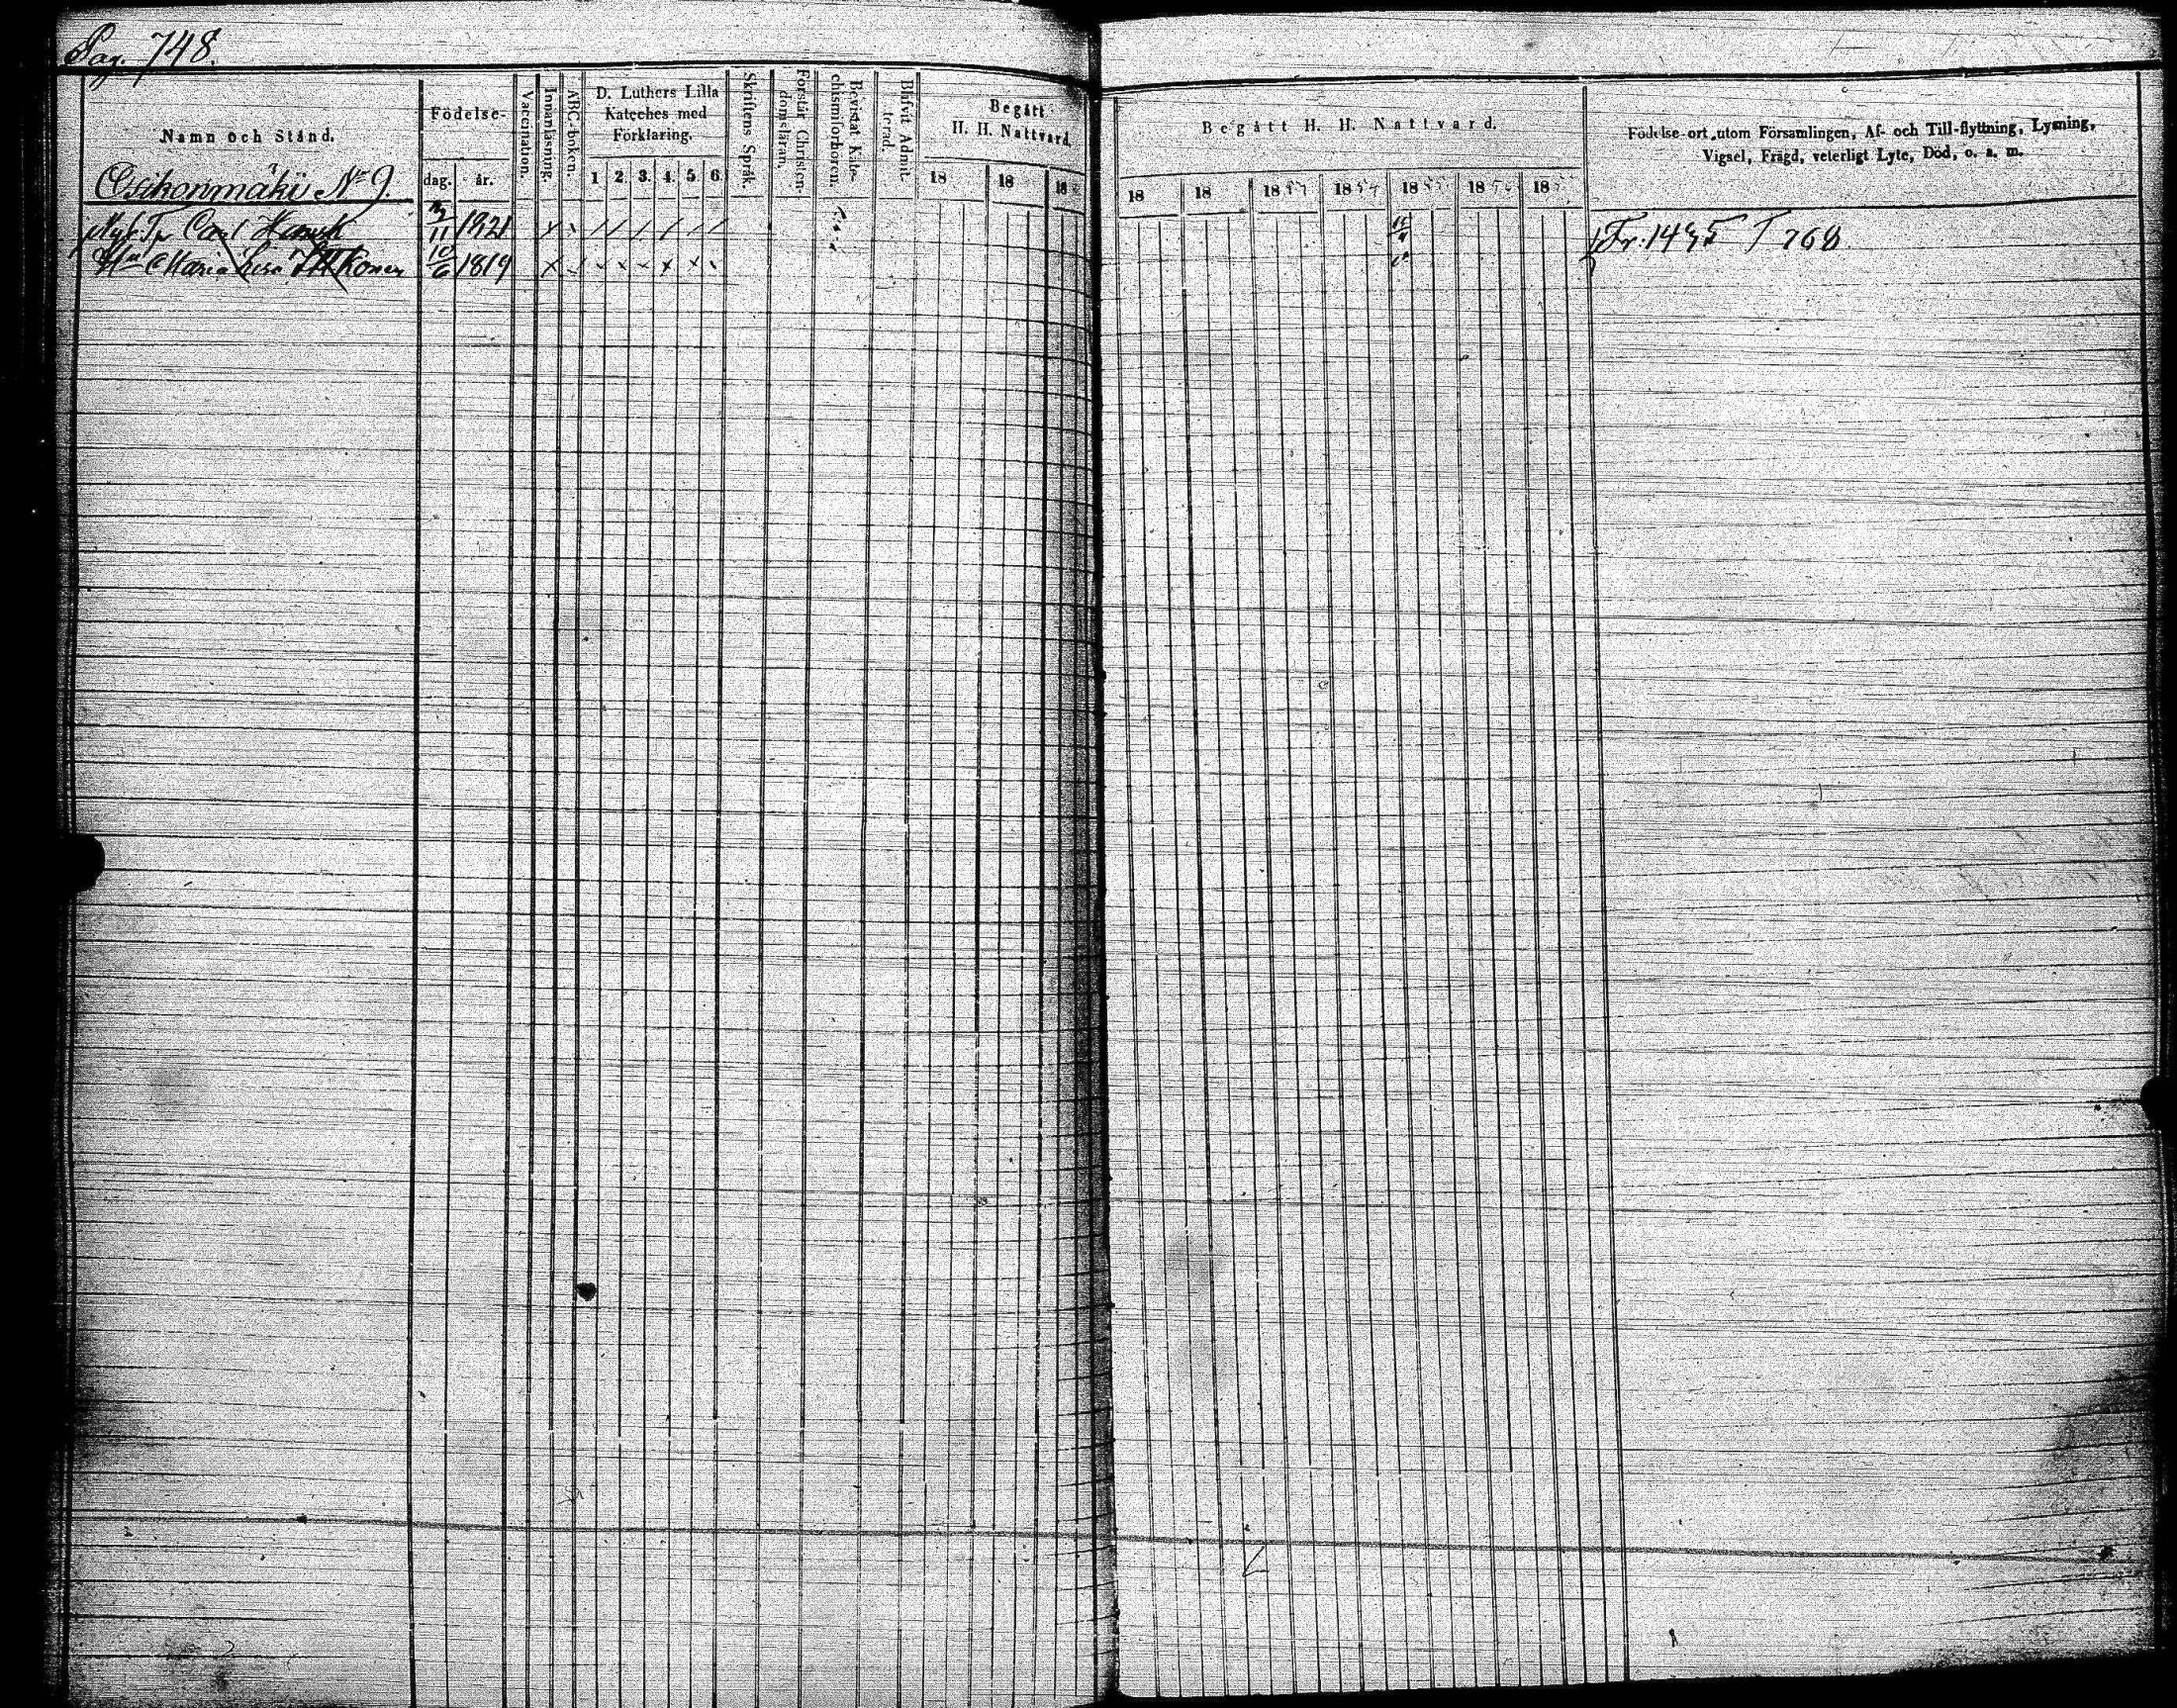 Pag. 748.
Namn och Stånd.
Födelse-
dag.
år.
Vaccination.
Innanläsning.
ABC-boken.
D. Luthers Lilla
Kateches med
Förklaring.
1 2. 3. 4. 5. 6.
Skriftens Språk.
Förstår Christen-
domsläran.
Bevistat Kate-
chismiförhören.
Blifvit Admit-
terad.
Begått
H. H. Nattvard.
18 18 18
Begått H. H. Nattvard.
18 18 1853 1854 1855 1856 185
Födelse-ort utom Församlingen, Af- och Till-flyttning, Lysning,
Vigsel, Frägd, veterligt Lyte, Död, o. s. m.
Osikonmäki No 9.
Carl 11 1821 Fr. 1495 T 768
Hu Maria Lisa Ikonen 10/6 1819